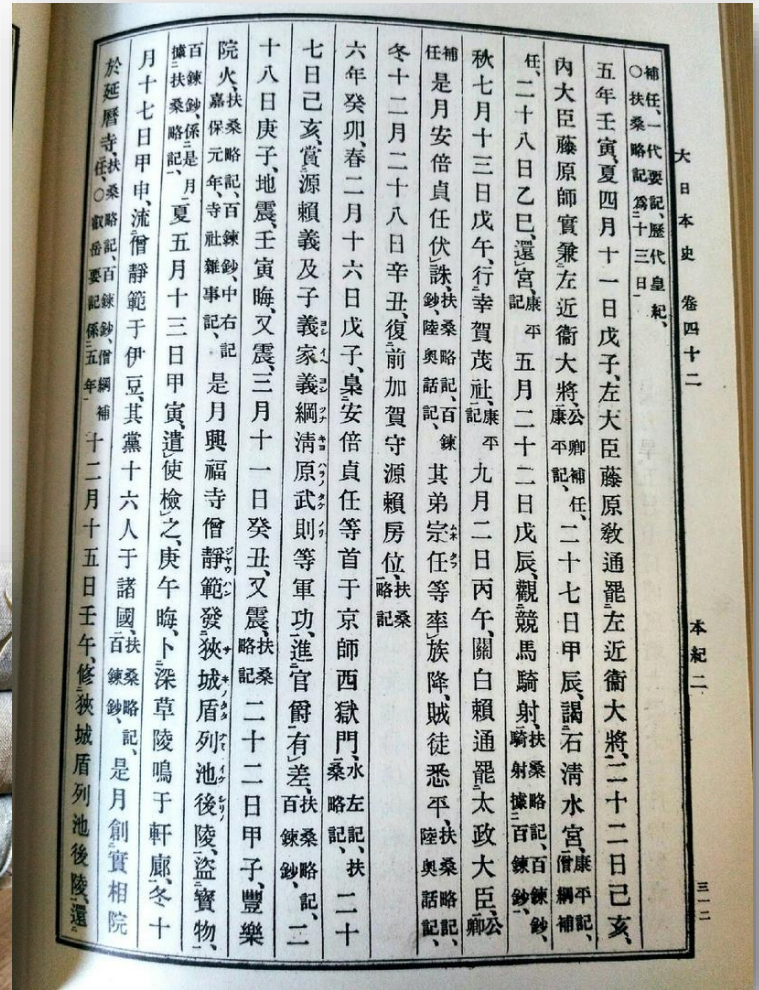 大日本史 卷四十二 本紀二 三一二
補任、一代要記、歷代皇紀、○扶桑略記爲二十三日一
五年壬寅、夏四月十一日戊子、左大臣藤原敎通罷二左近衞大將、一二十二日己亥、
內大臣藤原師實兼二左近衞大將、一公卿補任、康平記、二十七日甲辰、謁二石淸水宮、一康平記、僧綱補
任、二十八日乙巳、還レ宮、康平記 五月二十二日戊辰、觀二競馬騎射、一扶桑略記、百鍊鈔、騎射據二百鍊鈔、一
秋七月十三日戊午、行二幸賀茂社、一康平記 九月二日丙午、關白賴通罷二太政大臣、一公卿
補任 是月安倍貞任伏レ誅、扶桑略記、百鍊鈔、陸奧話記、其弟宗任ムネタフ等率レ族降、賊徒悉平、扶桑略記、陸奧話記、
冬十二月二十八日辛丑、復二前加賀守源賴房位、一扶桑略記
六年癸卯、春二月十六日戊子、梟二安倍貞任等首于京師西獄門、一水左記、扶桑略記、二十
七日己亥、賞二源賴義及子義家ヨシイヘ義綱ヨシツナ淸原武則キヨハラノタケノリ等軍功、一進二官爵一有レ差、扶桑略記、百鍊鈔、二
十八日庚子、地震、壬寅晦、又震、三月十一日癸丑、又震、扶桑略記 二十二日甲子、豐樂
院火、扶桑略記、百鍊鈔、中右記嘉保元年、寺社雜事記、是月興福寺僧靜範ジヤウハン發二狹城盾列池後陵サキノタタナミイケシリノ、一盜二寳物、一
百鍊鈔、係二是月一據二扶桑略記、一夏五月十三日甲寅、遣レ使檢レ之、庚午晦、卜二深草陵鳴于軒廊、一冬十
月十七日甲申、流二僧靜範于伊豆、其黨十六人于諸國、一扶桑略記、百鍊鈔、是月創二實相院
於延曆寺、一扶桑略記、百鍊鈔、僧綱補任、○叡岳要記係二五年一十二月十五日壬午、修二狹城盾列池後陵、一還二